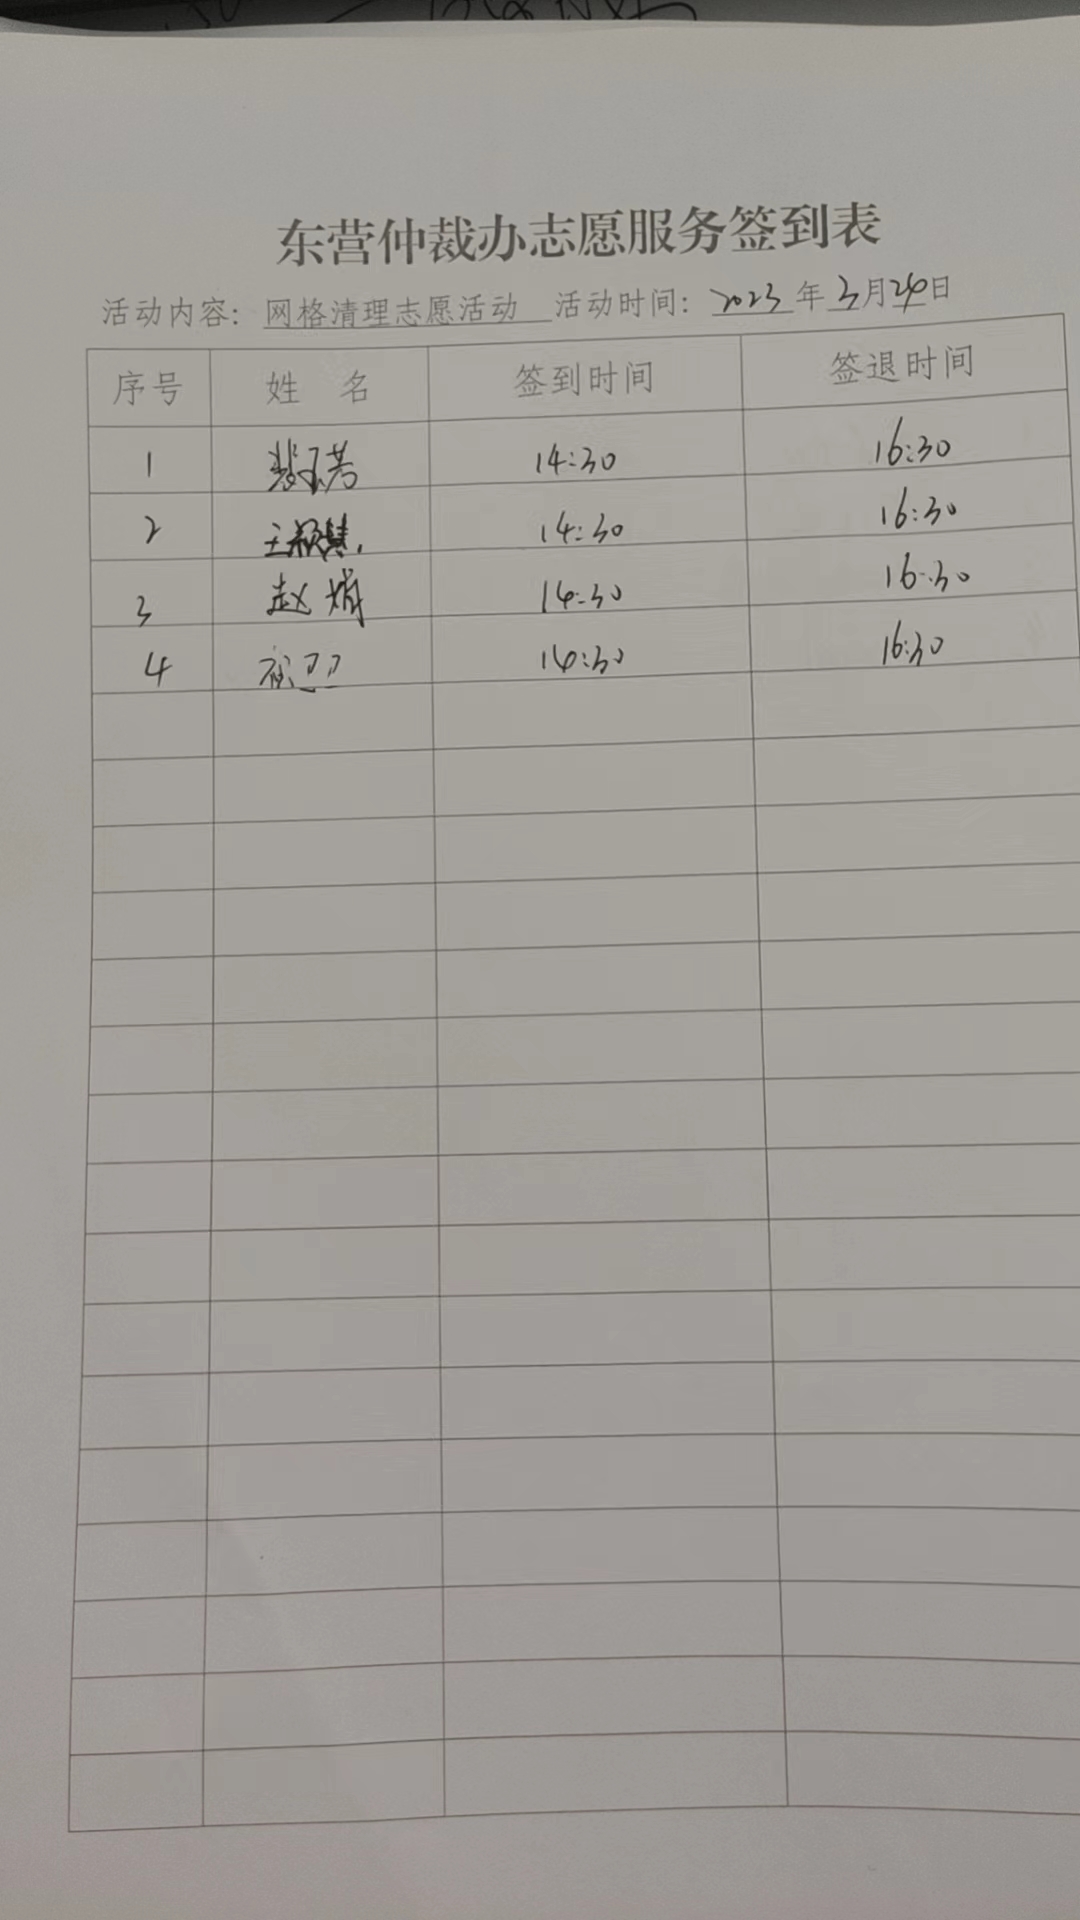 东营仲裁办志愿服务签到表
活动内容: 网格清理志愿活动 活动时间: 2023年3月24日
序号 姓 名 签到时间 签退时间
1 14:30 16:30
2 王颖慧 14:30 16:30
3 赵娟 14:30 16:30
4 14:30 16:30